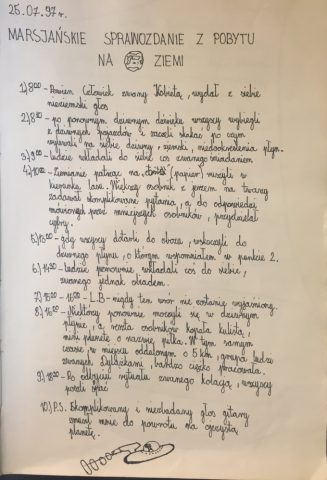 25.07.97r.
MARSJAŃSKIE SPRAWOZDANIE Z POBYTU
NA ZIEMI
1.) 8⁰⁰ - Pewien Człowiek zwany Kobietą, wydał z siebie
nieziemski głos
2.) 8³⁰ - po ponownym dziwnym dźwięku wszyscy wybiegli
z dziwnych pojazdów i zaczęli skakać po czym
wylewali na siebie dziwny, ziemski, niedookreślenia płyn.
3.) 9⁰⁰ - ludzie wkładali do siebie coś zwanego śniadaniem.
4.) 10⁰⁰ - Ziemianie patrząc na (papier) ruszyli w
kierunku lasu. Większy osobnik z piórem na twarzy
zadawał skomplikowane pytania, a do odpowiedzi
mówionych przez mniejszych osobników, przydzielał
cyfry.
5.) 13⁰⁰ - gdy wszyscy dotarli do obozu, wskoczyli do
dziwnego płynu, o którym wspomniałem w punkcie 2.
6.) 14³⁰ - ludzie ponownie wkładali coś do siebie,
zwanego jednak obiadem.
7.) 15⁰⁰ - 16⁰⁰ - L.B - nigdy ten wór nie zostanie wyjaśniony.
8.) 16⁰⁰ - Niektórzy ponownie moczyli się w dziwnym
płynie, a reszta osobników kopała kulistą,
planetę o nazwie piłka. W tym samym
czasie, w miejscu oddalonym o 5 km, grupa ludzi
zwanych bardzo ciężko pracowała.
9.) 18⁰⁰ - Po odbyciu rytuału zwanego kolacją, wszyscy
poszli spać.
10.) P.S. Skomplikowany i niezbadany głos gitary
zmusił mnie do powrotu na ojczystą
planetę.